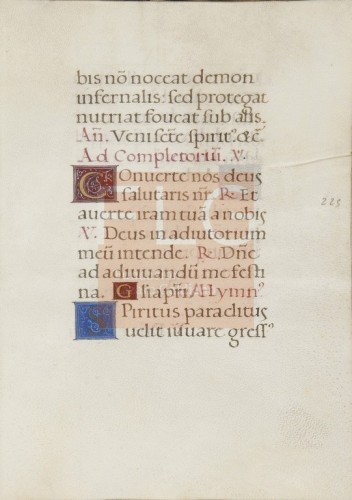 bis nō noceat demon
infernalis: sed protegat
nutriat foueat sub alis.
Añ. Veni scte spirit⁹. & č.
Ad Completoriū. ℣.
Conuerte nos deus
salutaris nr̃ ℞. Et
auerte iram tuā a nobis
℣. Deus in adiutorium
meū intende. ℞. Dñe
ad adiuuandū me festi
na. Glia pr̃i A Hymn⁹
SPiritus paraclitus
uelit iuuare gress⁹
225